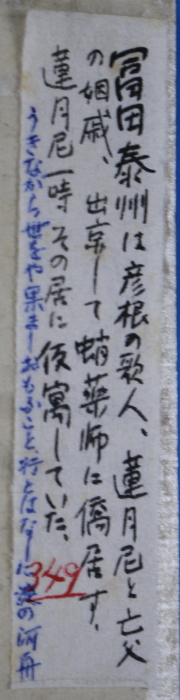 冨田泰州は彦根の歌人、蓮月尼と亡父
の姻戚、出京して蛸薬師に僑居す、
蓮月尼一時その居に仮寓していた、
349
うきながら世をや果まし おもふこと 行とはなしに 淀の河舟